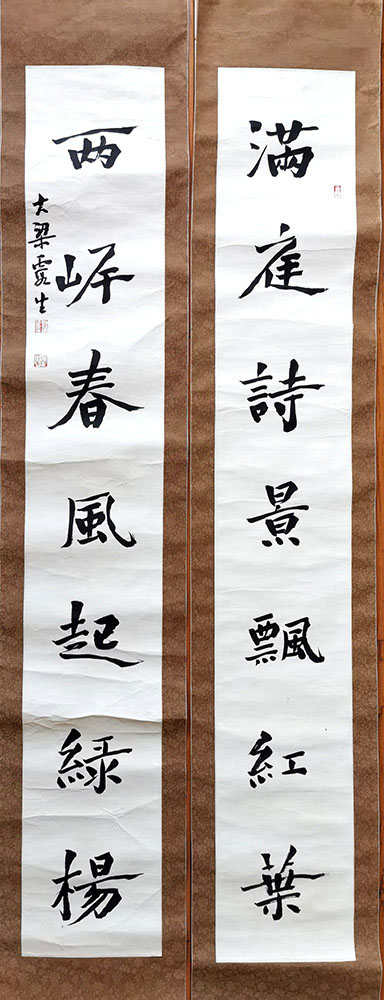 滿庭詩景飄紅葉
两岍春風起綠楊
大梁霞生